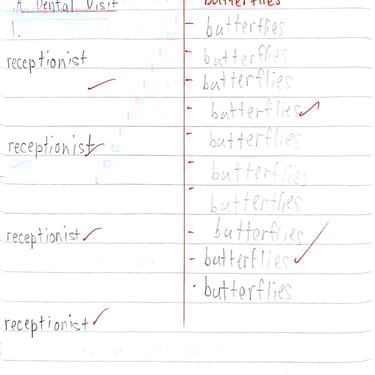 A Dental Visit
1.
receptionist
receptionist
receptionist
receptionist
butterflies
- butterflies
- butterflies
- butterflies
- butterflies
- butterflies
- butterflies
- butterflies
- butterflies
- butterflies
- butterflies